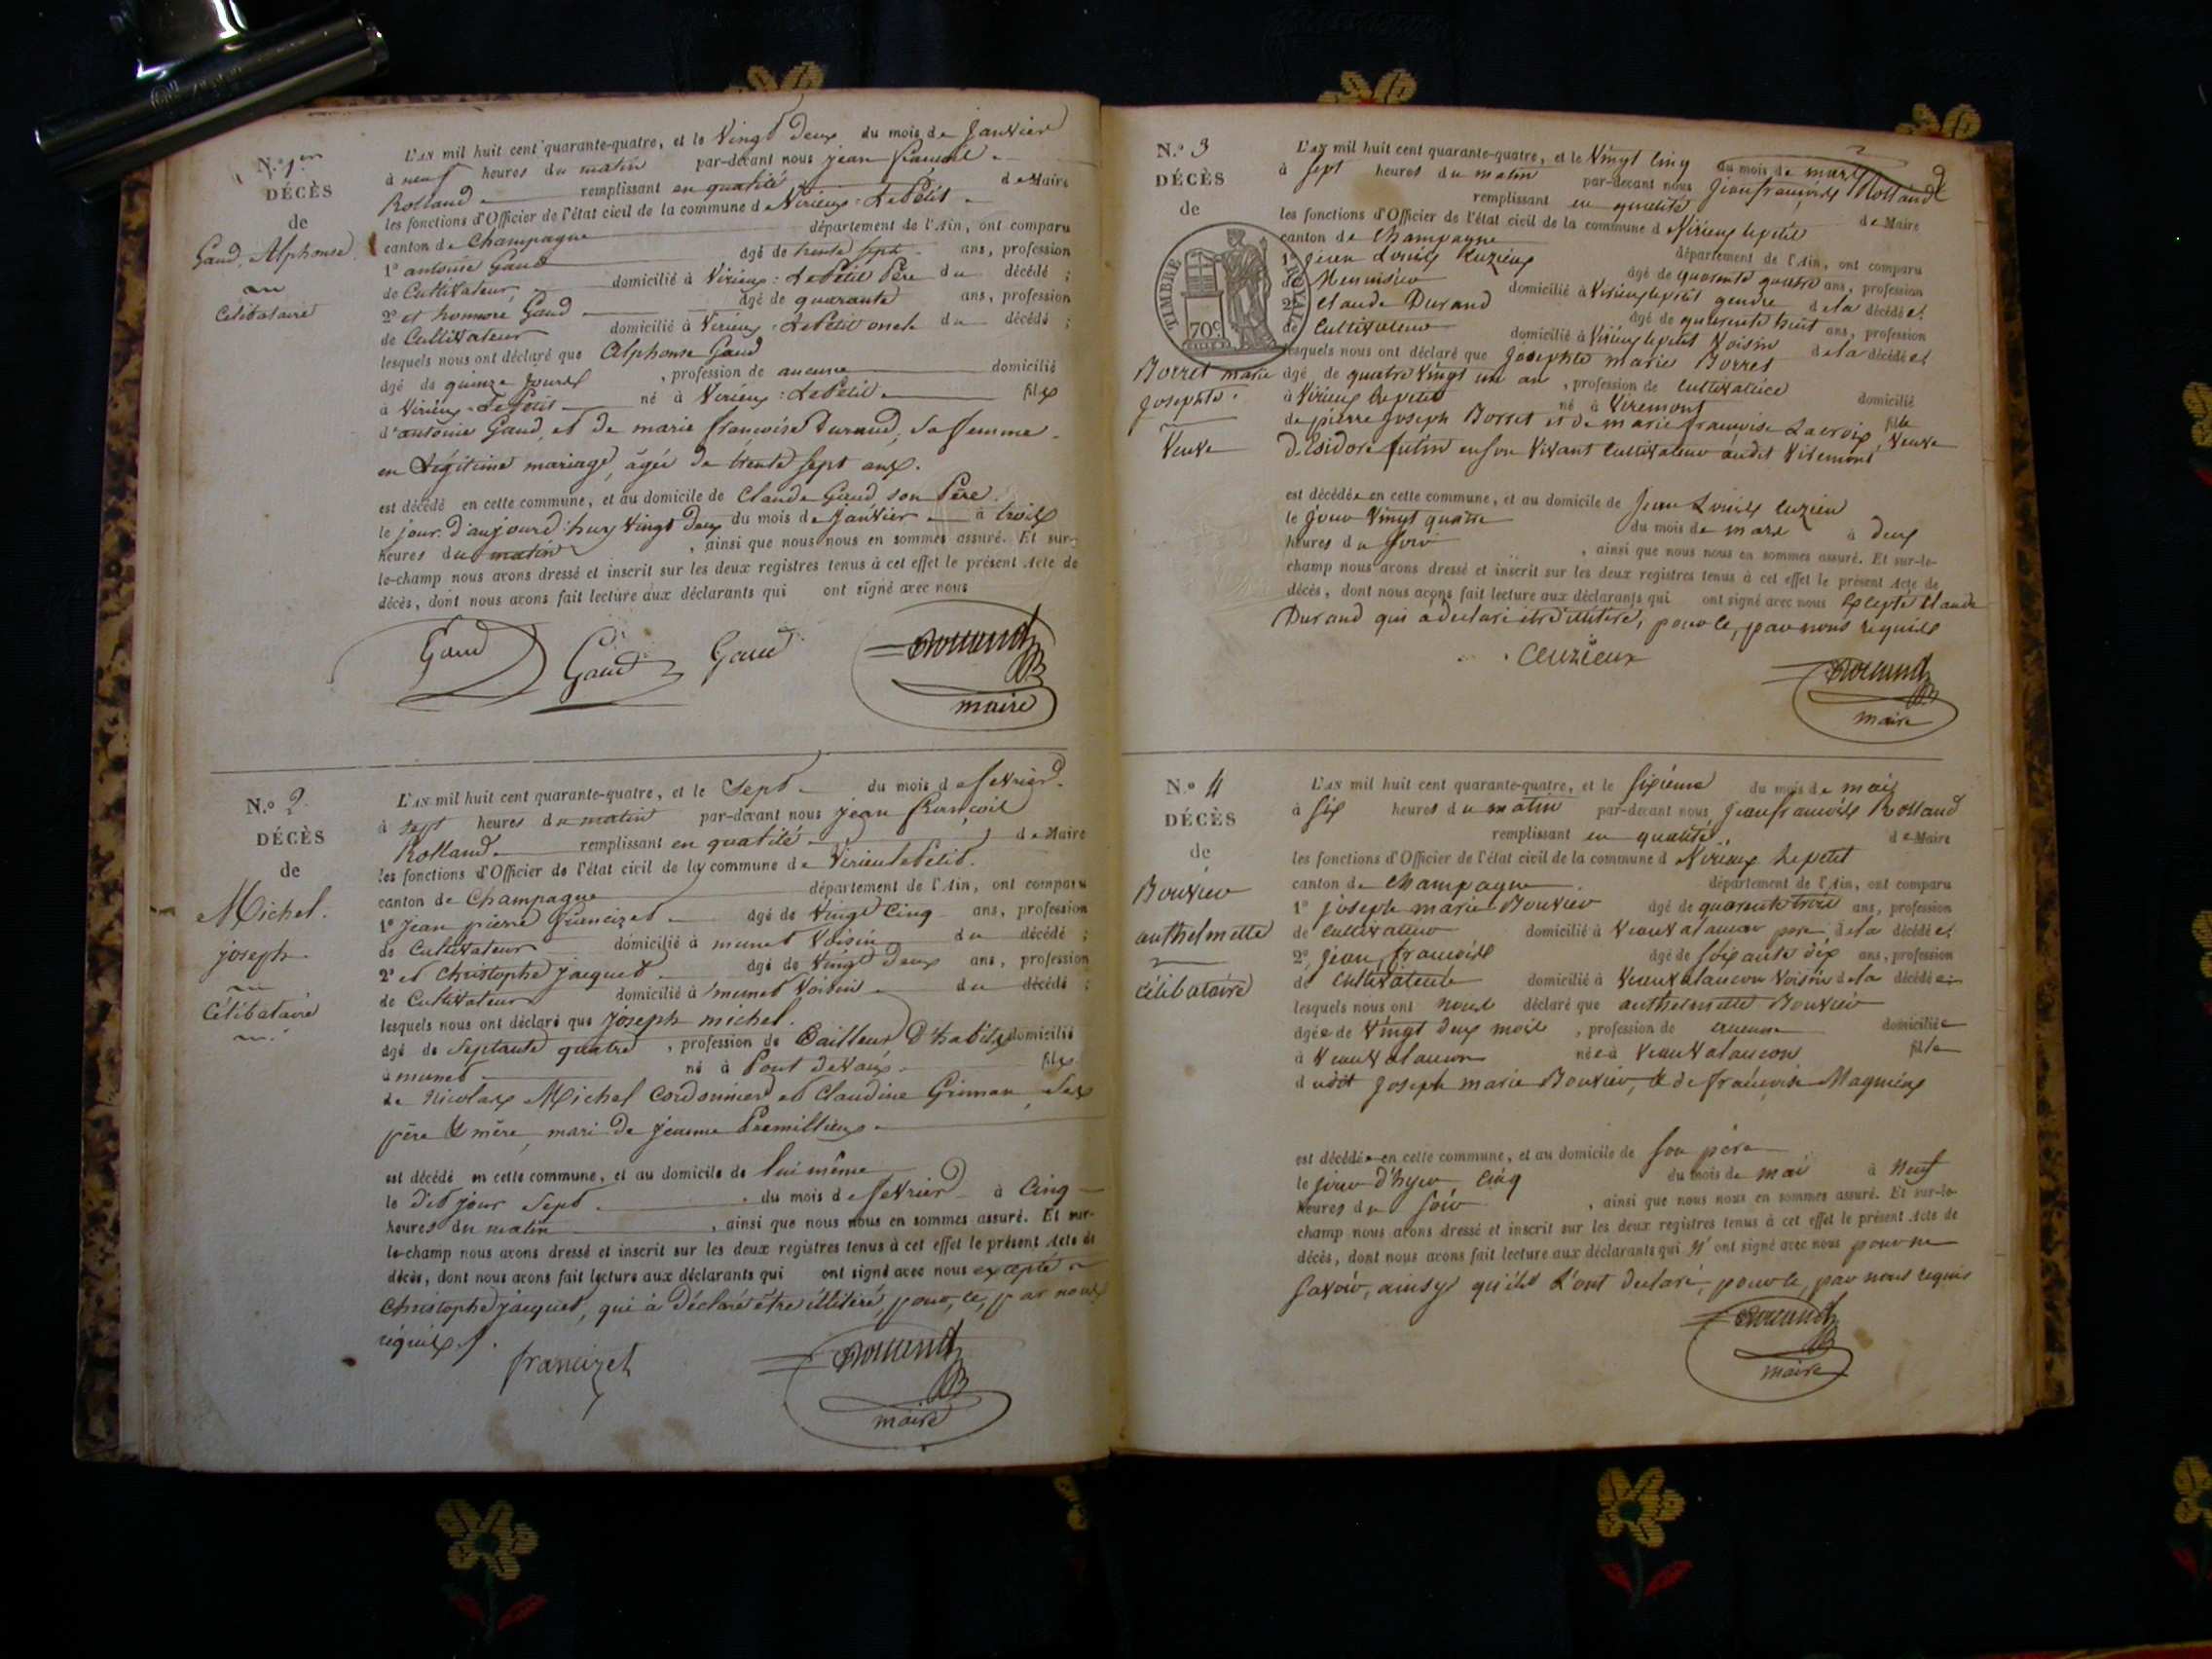 N.º 1er
DÉCÈS
de
Gaud Alphonse
Célibataire
L'AN mil huit cent quarante-quatre, et le Vingt deux du mois de Janvier
à neuf heures du matin par-devant nous jean
Rolland remplissant en qualité de Maire
les fonctions d'Officier de l'état civil de la commune de Virieux-LePetit
canton de Champagne département de l'Ain, ont comparu
1º antoine Gaud âgé de trente sept ans, profession
de Cultivateur domicilié à Virieux-LePetit Père du décédé ;
2º et honnoré Gaud âgé de quarante ans, profession
de Cultivateur domicilié à Virieux-LePetit oncle du décédé ;
lesquels nous ont déclaré que Alphonse Gaud
âgé de quinze jours, profession de aucune domicilié
à Virieux-LePetit né à Virieux-LePetit fils
d'antoine Gaud, et de marie françoise Durand, Sa femme
en Légitime mariage, âgée de trente sept ans.
est décédé en cette commune, et au domicile de Claude Gaud son Père
le jour d'aujourd'huy Vingt deux du mois de Janvier à trois
heures du matin, ainsi que nous nous en sommes assuré. Et sur-
le-champ nous avons dressé et inscrit sur les deux registres tenus à cet effet le présent Acte de
décès, dont nous avons fait lecture aux déclarants qui ont signé avec nous
Gaud Gaud Gaud Rolland
maire
N.º 2
DÉCÈS
de
Michel
joseph
Célibataire
L'AN mil huit cent quarante-quatre, et le Sept du mois de fevrier
à sept heures du matin par-devant nous jean françois
Rolland remplissant en qualité de Maire
les fonctions d'Officier de l'état civil de la commune de Virieu LePetit
canton de Champagne département de l'Ain, ont comparu
1º Jean pierre francizet âgé de Vingt Cinq ans, profession
de Cultivateur domicilié à munet Voisin du décédé ;
2º et Christophe jacquet âgé de Vingt deux ans, profession
de Cultivateur domicilié à munet Voisin du décédé ;
lesquels nous ont déclaré que joseph michel
âgé de Septante quatre, profession de Tailleur D'habits domicilié
à munet né à Pont deVaux fils
de Nicolas Michel Cordonnier et Claudine Ses
père & mère, mari de jeanne
est décédé en cette commune, et au domicile de lui même
le dit jour Sept du mois de fevrier à Cinq
heures du matin, ainsi que nous nous en sommes assuré. Et sur-
le-champ nous avons dressé et inscrit sur les deux registres tenus à cet effet le présent Acte de
décès, dont nous avons fait lecture aux déclarants qui ont signé avec nous excepté
Christophe jacquet, qui à Déclaré être illitéré, pour ce, par nous
réquis
francizet Rolland
maire
N.º 3
DÉCÈS
de
TIMBRE ROYAL
70c
Borret marie
Josephte
Veuve
L'AN mil huit cent quarante-quatre, et le Vingt Cinq du mois de mars
à sept heures du matin par-devant nous Jean françois Rolland
remplissant en qualité de Maire
les fonctions d'Officier de l'état civil de la commune d Virieux lepetit
canton de Champagne département de l'Ain, ont comparu
1º Jean Louis Cuzieux âgé de quarente quatre ans, profession
de Menuisier domicilié à Virieux lepetit gendre de la décédée
2º Claude Durand âgé de quarente huit ans, profession
de Cultivateur domicilié à Virieux lepetit Voisin de la décédée
lesquels nous ont déclaré que Josephte marie Borret
âgé de quatre Vingt un an, profession de Cultivatrice domicilié
à Virieux lepetit né à Viremont fille
de pierre Joseph Borret et de marie françoise Lacroix, Veuve
D'Esidore en son Vivant Cultivateur audit Viremont
est décédée en cette commune, et au domicile de Jean Louis Cuzieu
le jour Vingt quatre du mois de mars à deux
heures du soir, ainsi que nous nous en sommes assuré. Et sur-le-
champ nous avons dressé et inscrit sur les deux registres tenus à cet effet le présent Acte de
décès, dont nous avons fait lecture aux déclarants qui ont signé avec nous Excepté Claude
Durand qui a déclaré être illitéré, pour ce, par nous requis
Cuzieux Rolland
maire
N.º 4
DÉCÈS
de
Bouvier
anthelmette
célibataire
L'AN mil huit cent quarante-quatre, et le sixième du mois de mai
à six heures du matin par-devant nous Jean françois Rolland
remplissant en qualité de Maire
les fonctions d'Officier de l'état civil de la commune d Virieux Lepetit
canton de Champagne département de l'Ain, ont comparu
1º joseph marie Bouvier âgé de quarente trois ans, profession
de Cultivateur domicilié à père de la décédée
2º jean françois âgé de soixante dix ans, profession
de Cultivateur domicilié à Voisin de la décédée
lesquels nous ont nous déclaré que anthelmette Bouvier
âgée de Vingt deux mois, profession de aucune domiciliée
à née à fille
dudit Joseph marie Bouvier, & de françoise
est décédée en cette commune, et au domicile de son père
le jour d'hyer cinq du mois de mai à neuf
heures du soir, ainsi que nous nous en sommes assuré. Et sur-le-
champ nous avons dressé et inscrit sur les deux registres tenus à cet effet le présent Acte de
décès, dont nous avons fait lecture aux déclarants qui N'ont signé avec nous pour ne
savoir, ainsy qu'ils L'ont declaré, pour ce, par nous requis
Rolland
maire